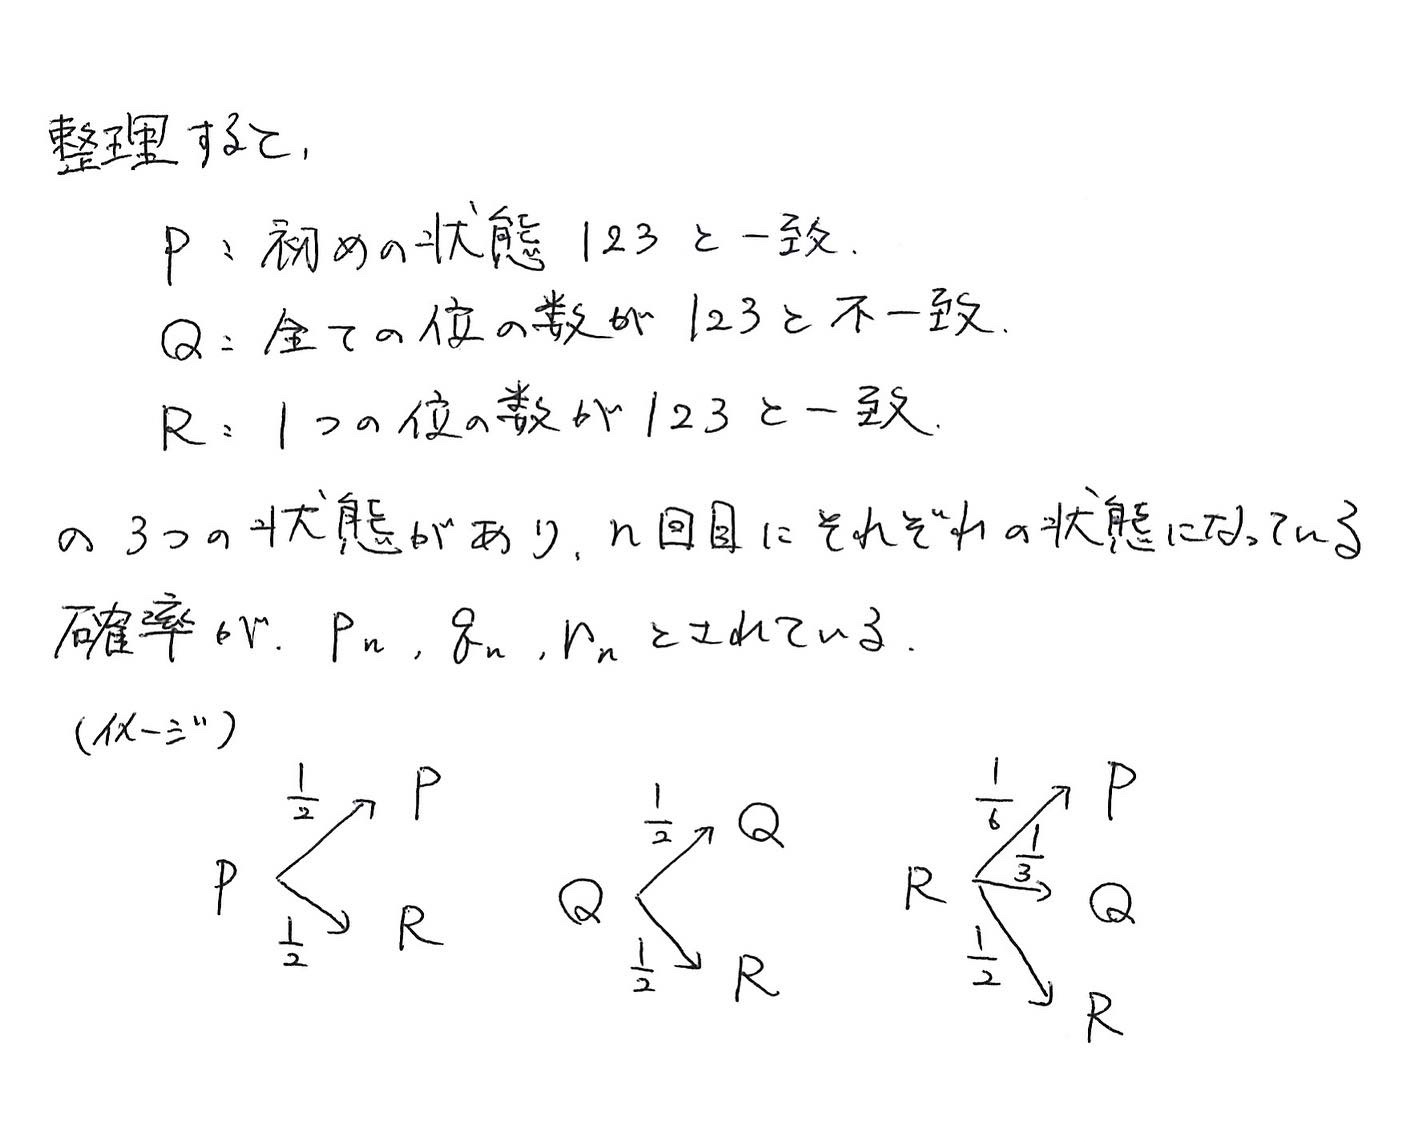 整理すると,
P: 初めの状態 123 と一致.
Q: 全ての位の数が 123 と不一致.
R: 1つの位の数が 123 と一致.
の 3つの状態があり, n回目にそれぞれの状態になっている
確率が, Pn, qn, rn とされている.
(イメージ)
1/2 P
P
1/2 R
1/2 Q
Q
1/2 R
1/6 P
R 1/3 Q
1/2 R